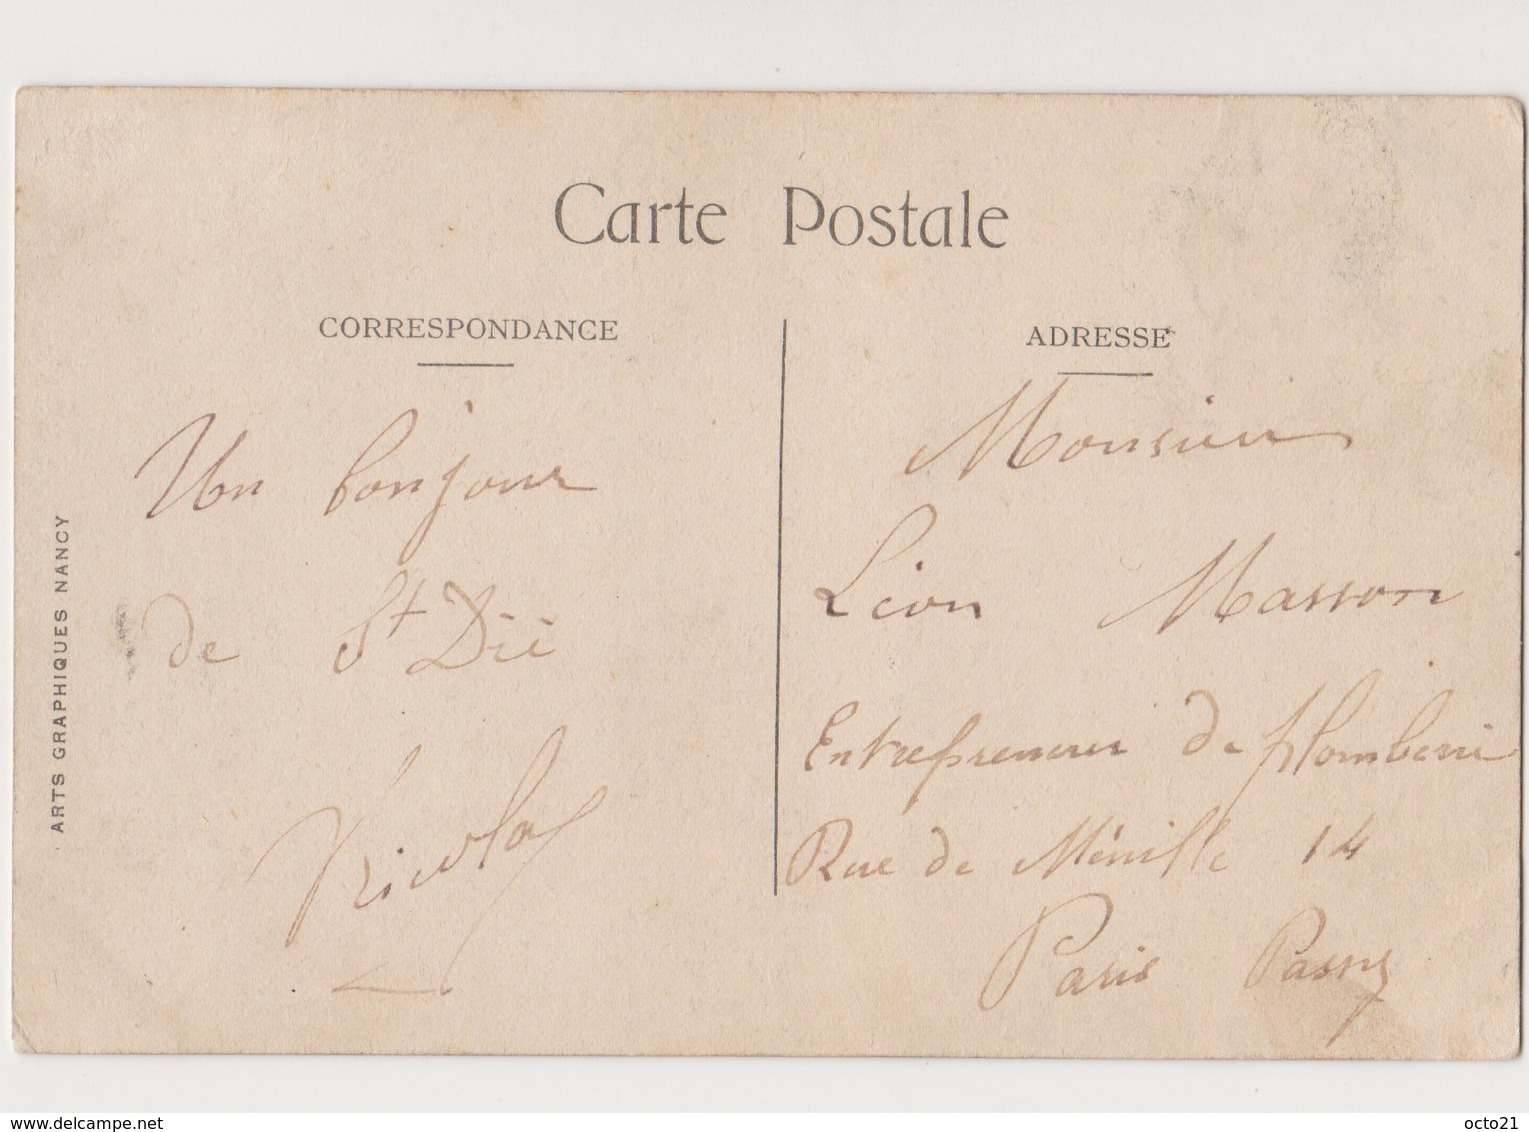 Carte Postale
CORRESPONDANCE
Un bonjour
de St Dié
Nicolas
ADRESSE
Monsieur
Léon Masson
Entrepreneur de plomberie
Rue de Ménille 14
Paris Passy
ARTS GRAPHIQUES NANCY
www.delcampe.net
octo21